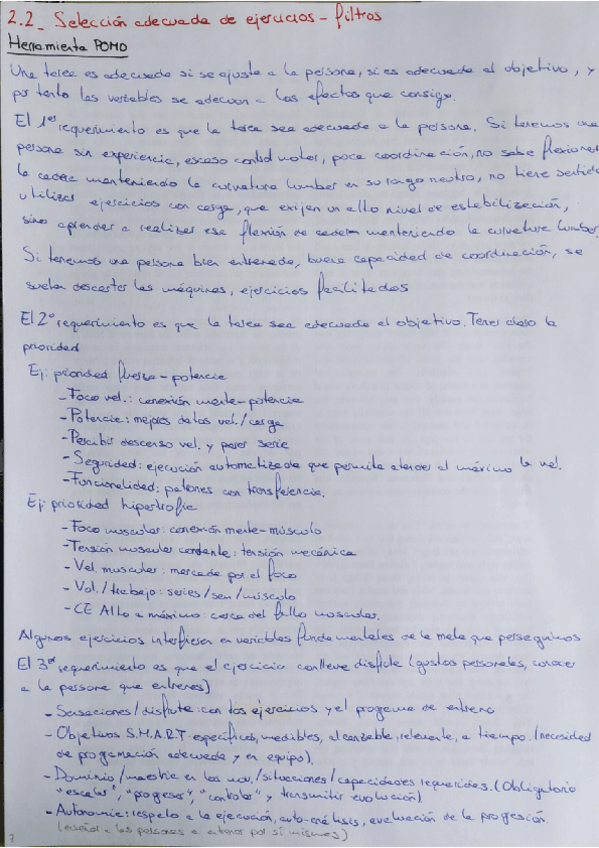 2.2_ Selección adecuada de ejercicios - filtros
Herramienta POMO
Una tarea es adecuada si se ajusta a la persona, si es adecuada al objetivo, y
por tanto las variables se adecuan a los efectos que consiga.
El 1er requerimiento es que la tarea sea adecuada a la persona. Si tenemos una
persona sin experiencia, escaso control motor, poca coordinación, no sabe flexionar
la cadera manteniendo la curvatura lumbar en su rango neutro, no tiene sentido
utilizar ejercicios con carga, que exijan un alto nivel de estabilización,
sino aprender a realizar esa flexión de cadera manteniendo la curvatura lumbar.
Si tenemos una persona bien entrenada, buena capacidad de coordinación, se
suelen descartar las máquinas, ejercicios facilitados
El 2º requerimiento es que la tarea sea adecuada al objetivo. Tener claro la
prioridad
Ej: prioridad fuerza - potencia
- Foco vel.: conexión mente-potencia
- Potencia: mejores datos vel./carga
- Percibir descenso vel. y parar serie
- Seguridad: ejecución automatizada que permita atender al máximo la vel.
- Funcionalidad: patrones con transferencia.
Ej: prioridad hipertrofia
- Foco muscular: conexión mente-músculo
- Tensión muscular constante: tensión mecánica
- Vel. muscular: marcada por el foco
- Vol./trabajo: series/sem/músculo
- CE Alto a máximo: cerca del fallo muscular.
Algunos ejercicios interfieren en variables fundamentales de la meta que perseguimos
El 3er requerimiento es que el ejercicio conlleve disfrute (gustos personales, conocer
a la persona que entrenes)
- Sensaciones/disfrute: con los ejercicios y el programa de entreno
- Objetivos S.M.A.R.T: específicos, medibles, alcanzable, relevante, a tiempo. (necesidad
de programación adecuada y en equipo).
- Dominio/maestría en los mov./situaciones/capacidades requeridas. (Obligatorio
"escalar", "progresar", "controlar" y transmitir evolución).
- Autonomía: respeto a la ejecución, auto-análisis, evaluación de la progresión.
(enseñar a las personas a entrenar por sí mismas)
7